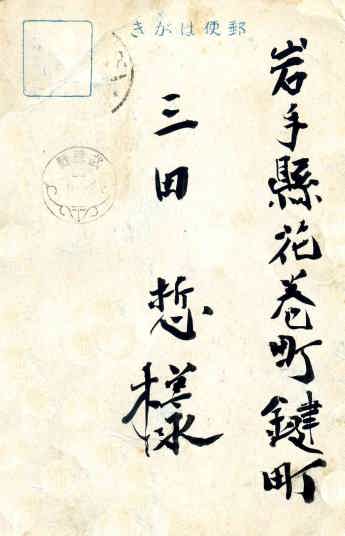 郵便はがき
岩手縣花巻町鍵町
三田 悊 様